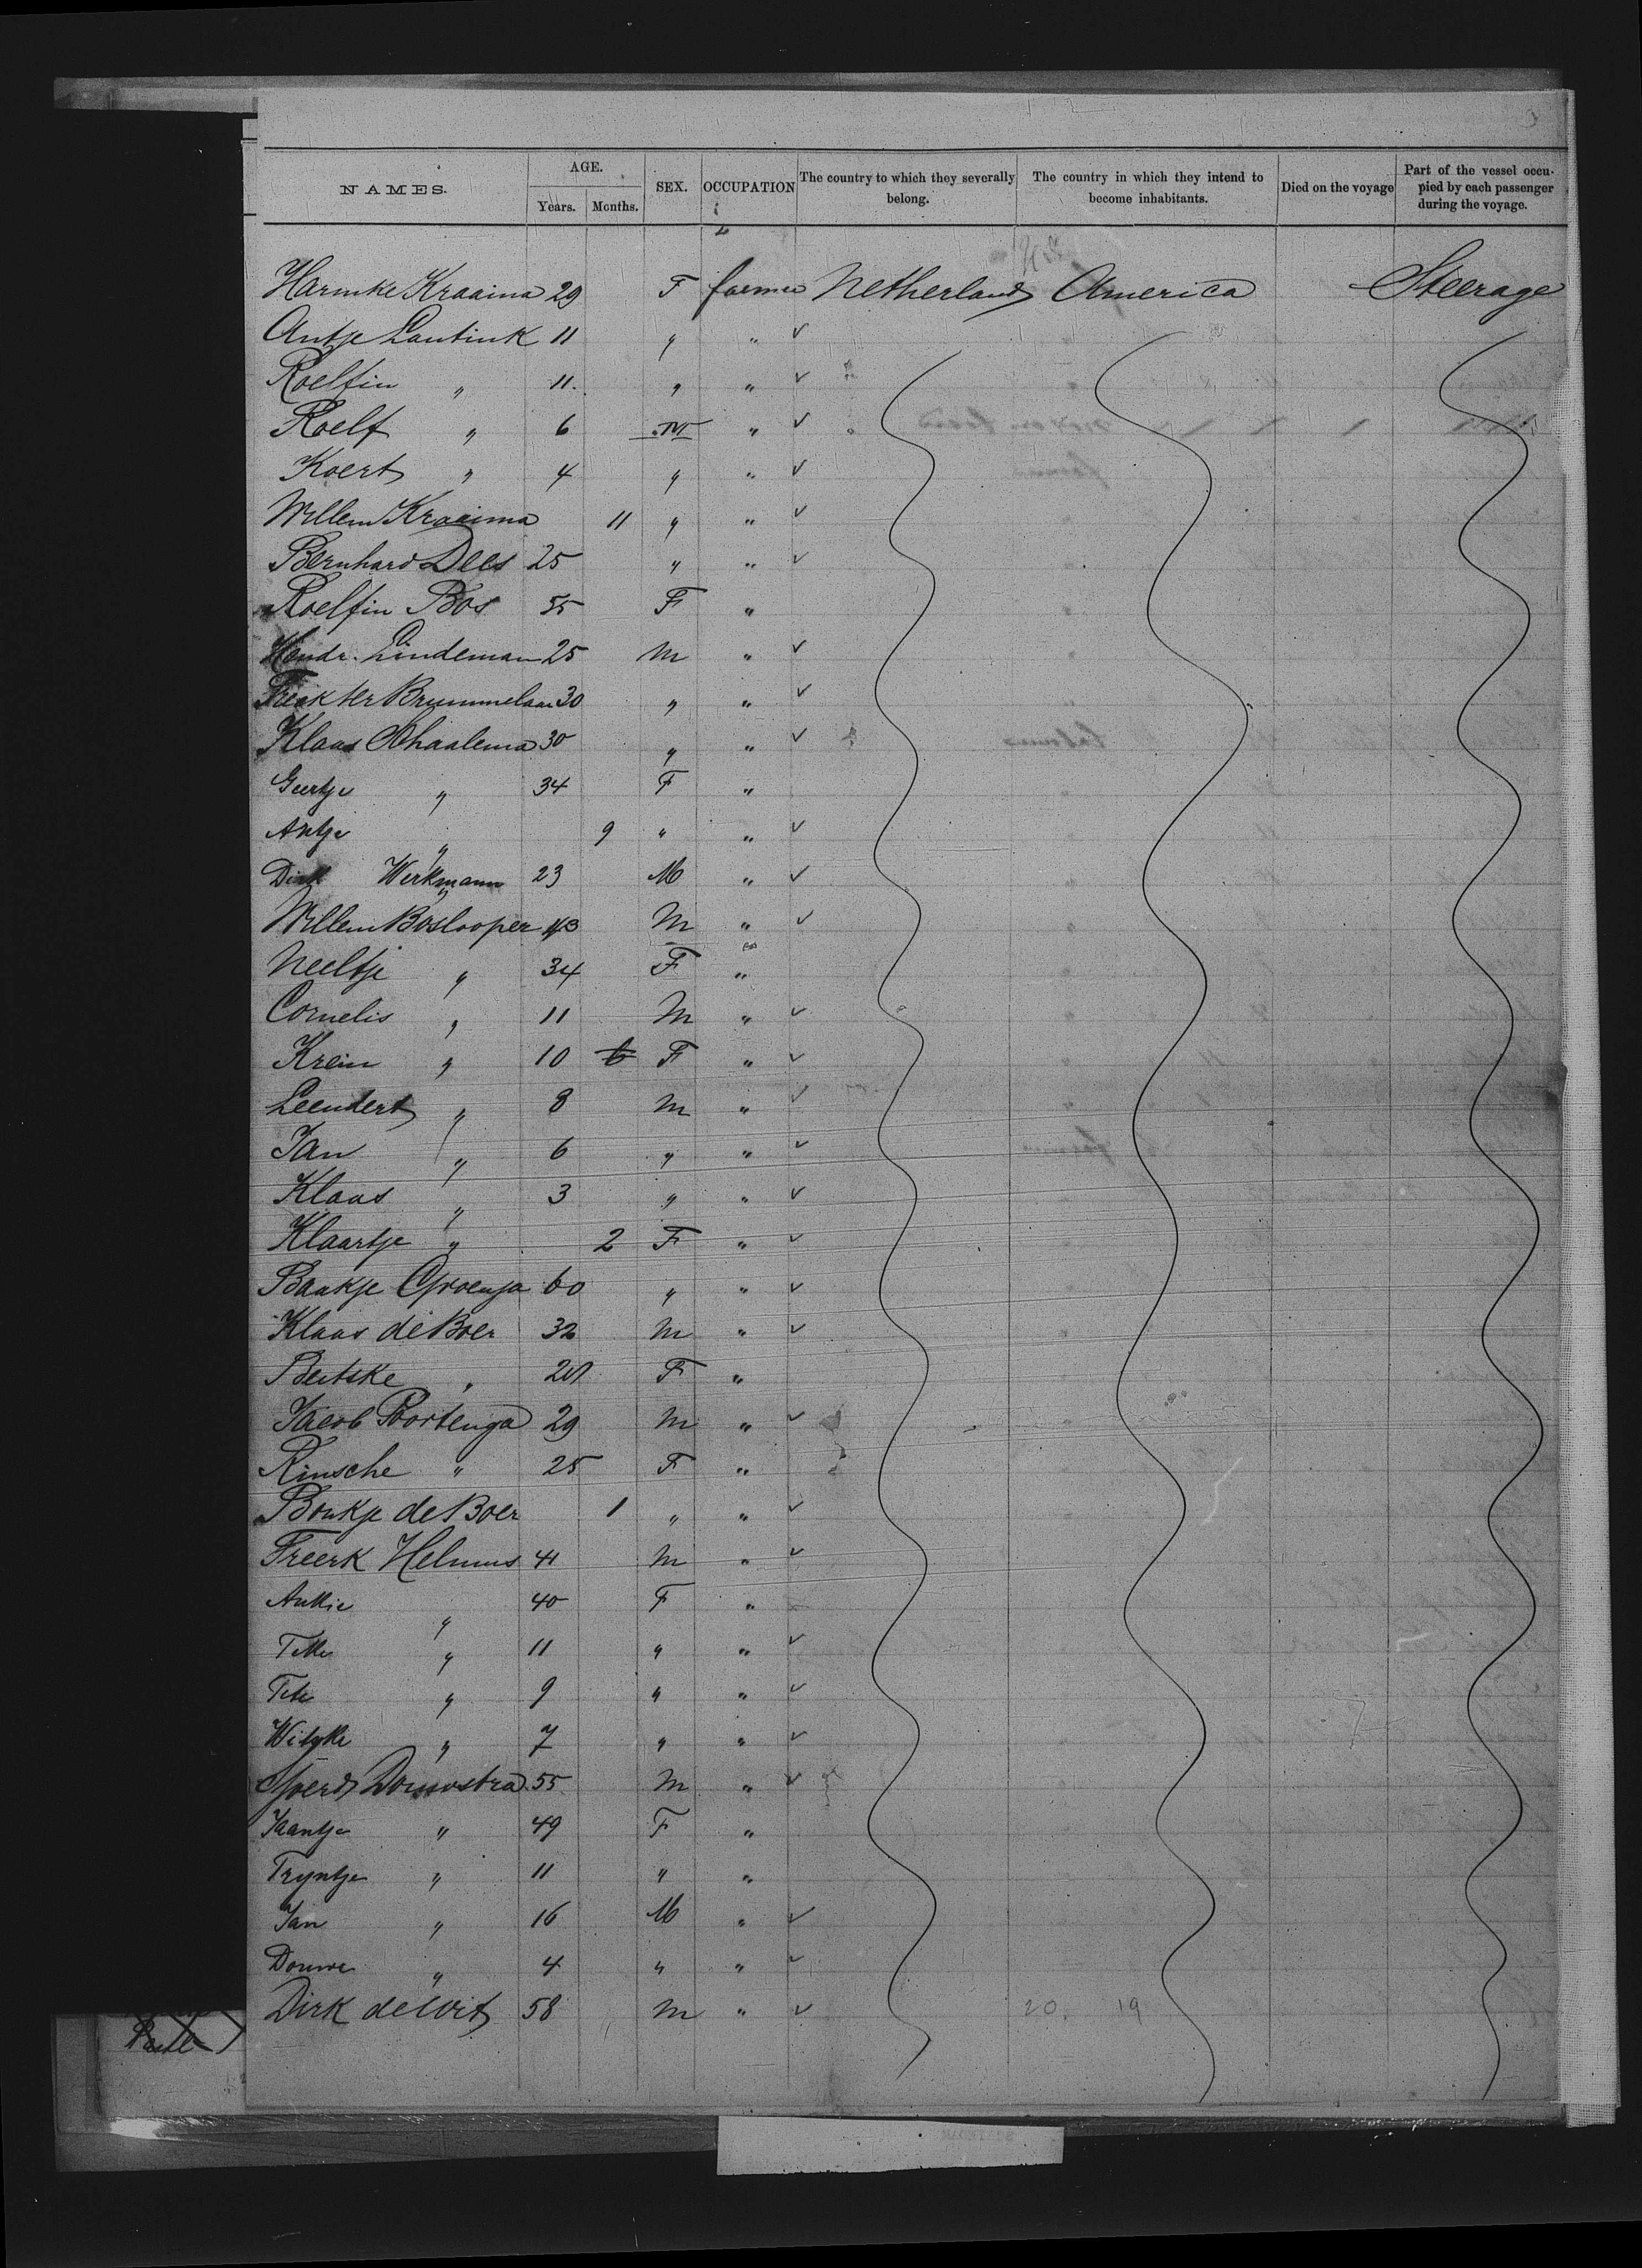 NAMES. AGE. Years. Months. SEX. OCCUPATION The country to which they severally belong. The country in which they intend to become inhabitants. Died on the voyage Part of the vessel occupied by each passenger during the voyage.
Harmke Kraaima 29 F farmer Netherlands America Steerage
Antje Lantink 11 " "
Roelfin " 11. " "
Roelf " 6 M "
Koert " 4 " "
Willem Kraaima 11 " "
Bernhard Dees 25 " "
Roelfin Bos 55 F "
Hendr. Lindeman 25 M "
Freak ter Brummelaar 30 " "
Klaas Schaalema 30 " "
Geertje " 34 F "
Antje " 9 " "
Dirk Werkmann 23 M "
Willem Boslooper 43 M "
Neeltje " 34 F "
Cornelis " 11 M "
Krein " 10 6 F "
Leendert " 8 M "
Jan " 6 " "
Klaas " 3 " "
Klaartje " 2 F "
Baukje Groenja 60 " "
Klaas de Boer 32 M "
Beitske " 20 F "
Jacob Portenga 29 M "
Rinsche " 25 F "
Boukje de Boer 1 " "
Freerk Helmus 41 M "
Ankie " 40 F "
" 11 " "
" 9 " "
Witske " 7 " "
Sjoerd Douwstra 55 M "
Jaantje " 49 F "
Tryntje " 11 " "
Jan " 16 M "
Douwe " 4 " "
Dirk de Wit 58 M " 20. 19